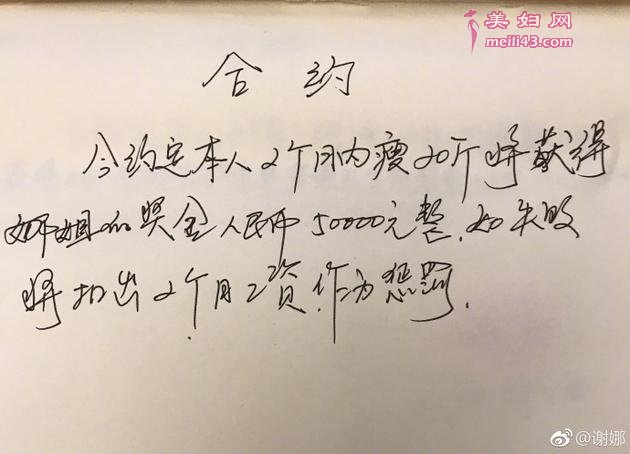 美妇网
meili43.com
合约
今约定本人2个月内瘦20斤将获得
娜姐的奖金人民币50000元整.如失败
将扣出2个月工资作为惩罚.
@谢娜